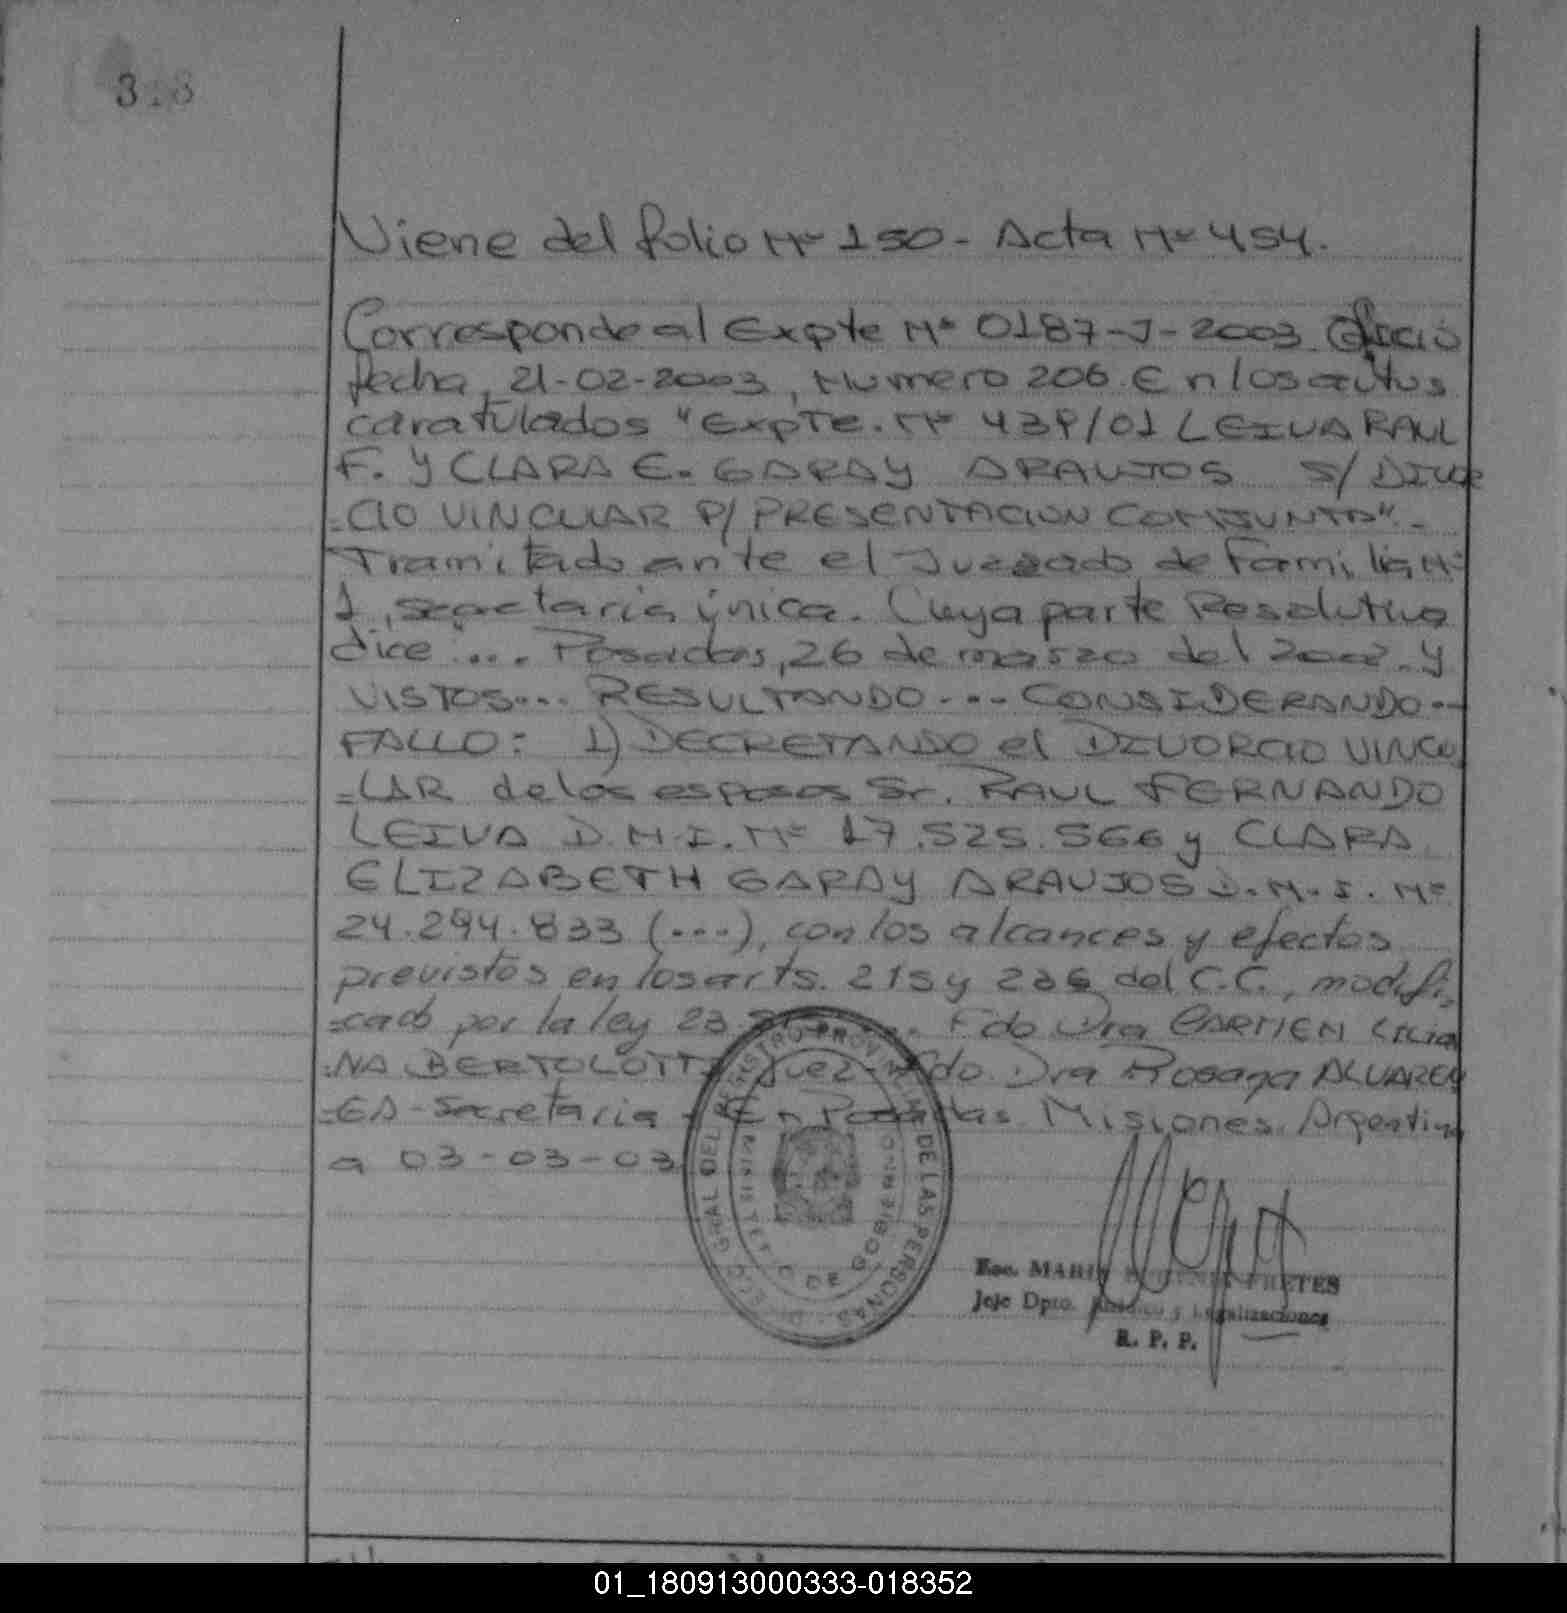 318
Viene del folio Nº 150 - Acta Nº 454.
Corresponde al Expte Nº 0187-J-2003. Oficio
fecha, 21-02-2003, Numero 206. En los autos
caratulados "Expte. Nº 439/01 LEIVA RAUL
F. Y CLARA E. GARAY ARAUJOS S/ DIVOR
=CIO VINCULAR P/ PRESENTACION CONJUNTA".-
Tramitado ante el Juzgado de Familia Nº
1, secretaria única. Cuya parte Resolutiva
dice:... Posadas, 26 de marzo del 2002. Y
VISTOS... RESULTANDO... CONSIDERANDO...
FALLO: 1) DECRETANDO el DIVORCIO VINCU
=LAR de los esposos Sr. RAUL FERNANDO
LEIVA D.N.I. Nº 17.525.566 y CLARA
ELIZABETH GARAY ARAUJOS D.N.I. Nº
24.294.833 (...), con los alcances y efectos
previstos en los arts. 215 y 236 del C.C., modifi
=cado por la ley 23. Fdo Dra CARMEN LILIA
=NA BERTOLOTTI Juez- Fdo. Dra Rosana ALVAREN
=GA - Secretaria - En Posadas. Misiones. Argentina
a 03-03-03
REGISTRO PROVINCIAL DE LAS PERSONAS
MINISTERIO DE GOBIERNO
Esc. MARIA EUGENIA FRETES
Jefe Dpto. Jurídico y Legalizaciones
R. P. P.
01_180913000333-018352